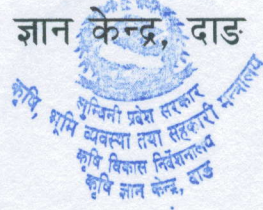 ज्ञान केन्द्र, दाङ
लुम्बिनी प्रदेश सरकार
कृषि, भूमि व्यवस्था तथा सहकारी मन्त्रालय
कृषि विकास निर्देशनालय
कृषि ज्ञान केन्द्र, दाङ